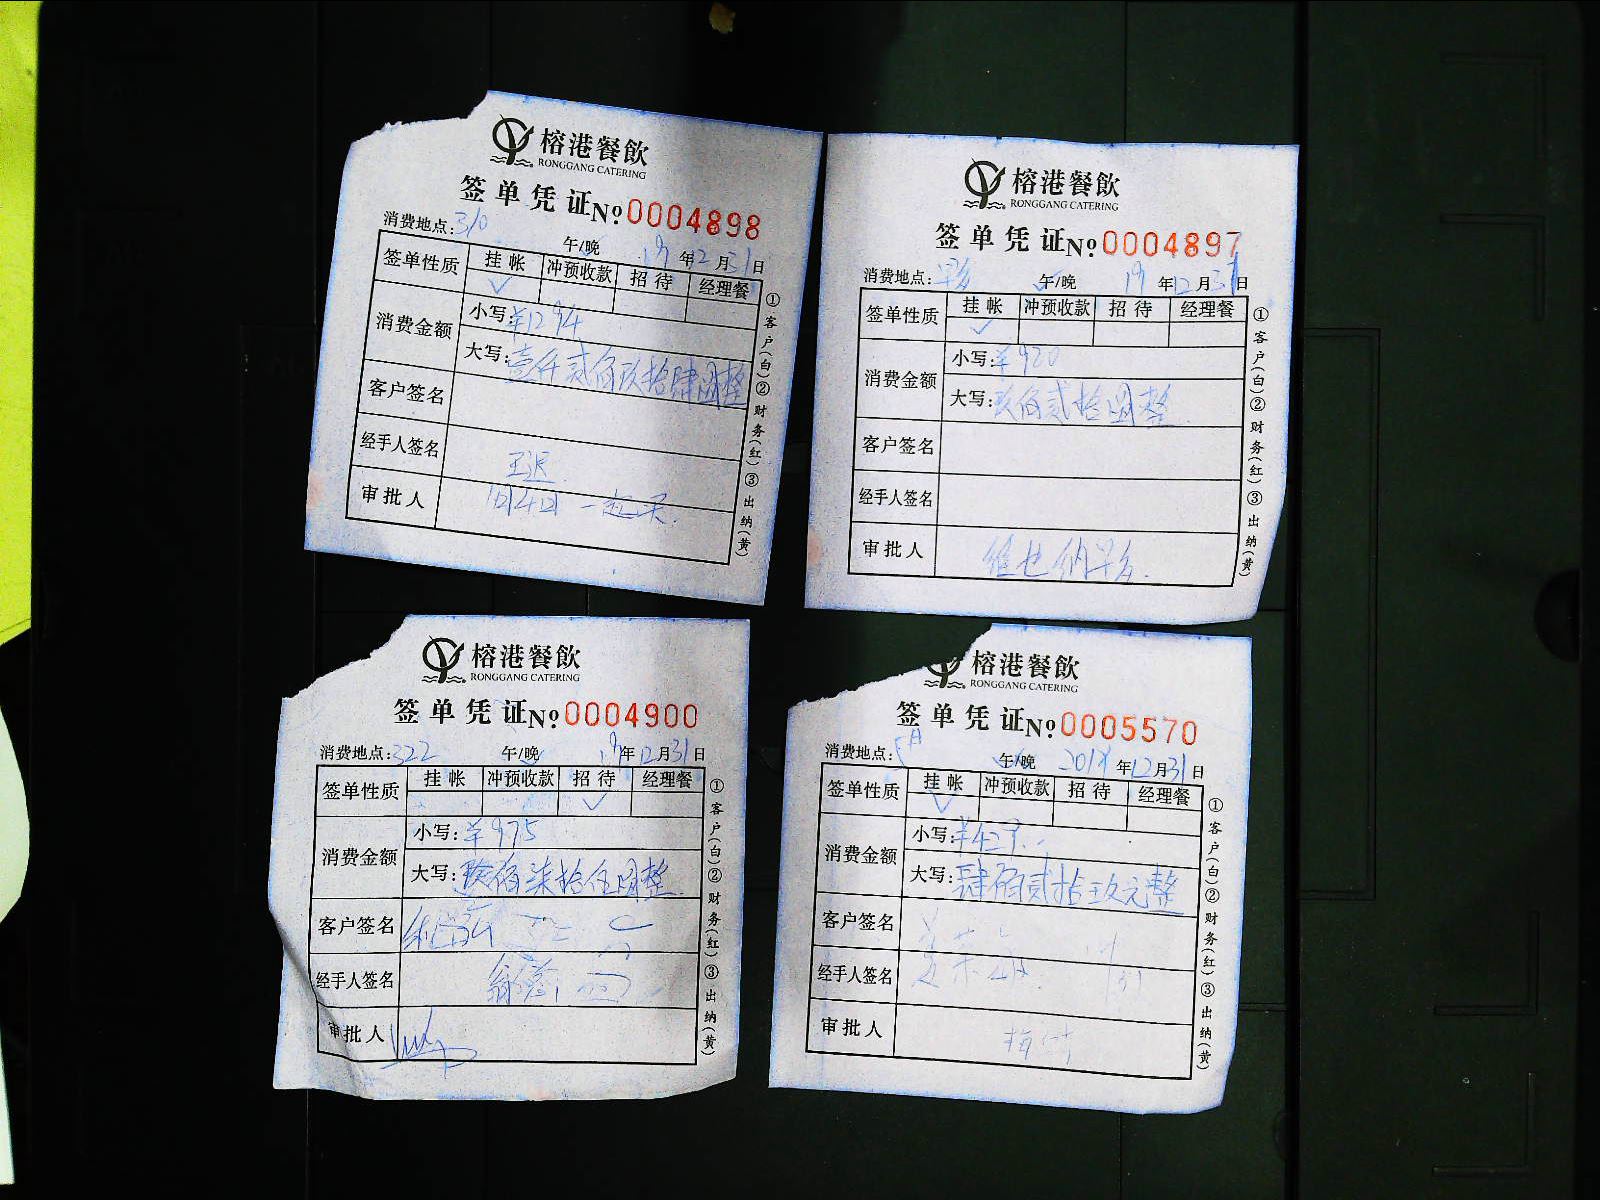 榕港餐飲
RONGGANG CATERING
签单凭证 No 0004898
消费地点:310 午/晚 19年12月31日
签单性质 挂帐 冲预收款 招待 经理餐
消费金额 小写:¥1294
大写:壹仟贰佰玖拾肆圆整
客户签名
经手人签名
审批人
①客户(白)②财务(红)③出纳(黄)
榕港餐飲
RONGGANG CATERING
签单凭证 No 0004897
消费地点: 午/晚 19年12月31日
签单性质 挂帐 冲预收款 招待 经理餐
消费金额 小写:¥920
大写:玖佰贰拾圆整
客户签名
经手人签名
审批人 维也纳
①客户(白)②财务(红)③出纳(黄)
榕港餐飲
RONGGANG CATERING
签单凭证 No 0004900
消费地点:322 午/晚 19年12月31日
签单性质 挂帐 冲预收款 招待 经理餐
消费金额 小写:¥975
大写:玖佰柒拾伍圆整
客户签名
经手人签名
审批人
①客户(白)②财务(红)③出纳(黄)
榕港餐飲
RONGGANG CATERING
签单凭证 No 0005570
消费地点: 午/晚 年12月31日
签单性质 挂帐 冲预收款 招待 经理餐
消费金额 小写:
大写:肆佰贰拾玖元整
客户签名
经手人签名
审批人
①客户(白)②财务(红)③出纳(黄)